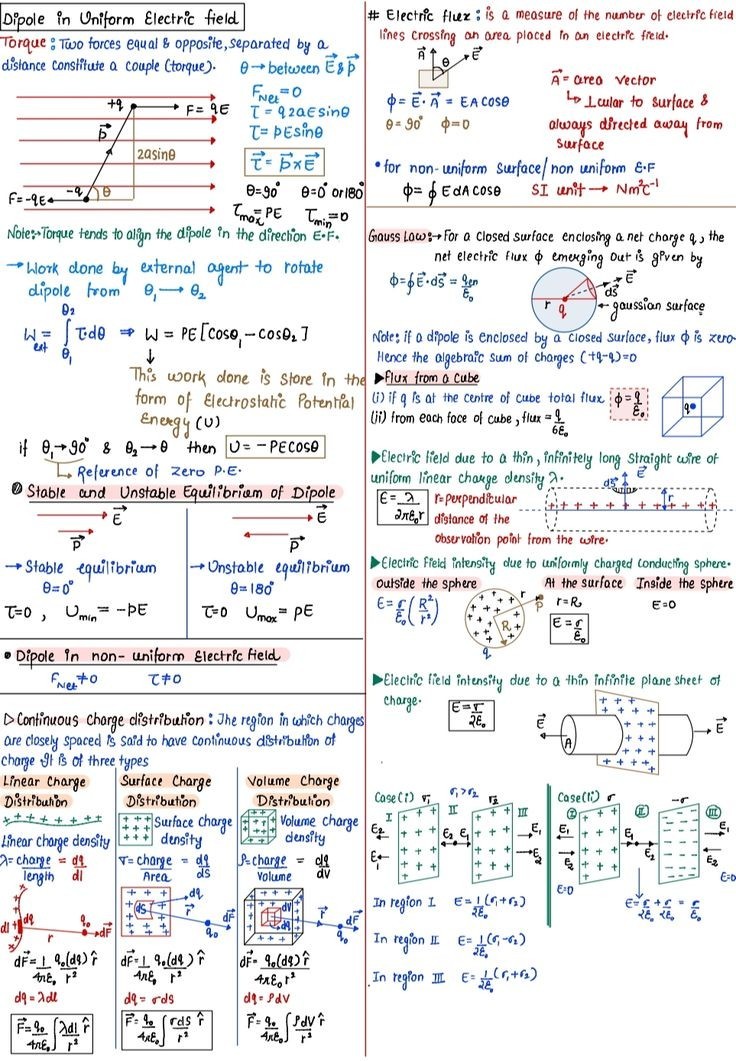 Dipole in Uniform Electric field
Torque: Two forces equal & opposite, separated by a
distance constitute a couple (torque).
θ → between E⃗ & p⃗
F_Net = 0
τ = q2aEsinθ
τ = pEsinθ
τ⃗ = p⃗ × E⃗
θ=90° θ=0° or 180°
τ_max = PE τ_min = 0
+q
F = qE
p⃗
2asinθ
-q
θ
F=-qE
Note:→Torque tends to align the dipole in the direction E.F.
→ Work done by external agent to rotate
dipole from θ₁ → θ₂
W_ext = ∫_θ₁^θ₂ τ·dθ ⇒ W = PE[Cosθ₁ - Cosθ₂]
This work done is store in the
form of Electrostatic Potential
Energy (U)
if θ₁→90° & θ₂→θ then U = -PECOSθ
Reference of zero P.E.
Stable and Unstable Equilibrium of Dipole
E⃗
P⃗
→ Stable equilibrium
θ=0°
τ=0 , U_min = -PE
E⃗
P⃗
→ Unstable equilibrium
θ=180°
τ=0 U_max = PE
• Dipole in non-uniform Electric field
F_Net ≠ 0 τ ≠ 0
▷ Continuous Charge distribution: The region in which charges
are closely spaced is said to have continuous distribution of
charge It is of three types
Linear Charge
Distribution
+ + + + + + + +
Linear charge density
λ = charge/length = dq/dl
dl
dq
r
q₀
dF⃗
dF⃗ = 1/4πε₀ q₀(dq)/r² r̂
dq = λdl
F⃗ = q₀/4πε₀ ∫ λdl/r² r̂
Surface Charge
Distribution
Surface charge
density
σ = charge/Area = dq/dS
dS
dq
r⃗
dF⃗
q₀
dF⃗ = 1/4πε₀ q₀(dq)/r² r̂
dq = σds
F⃗ = q₀/4πε₀ ∫ σds/r² r̂
Volume Charge
Distribution
Volume charge
density
ρ = charge/Volume = dq/dV
dV
dq
r⃗
dF⃗
q₀
dF⃗ = q₀(dq)/4πε₀ r² r̂
dq = ρdV
F⃗ = q₀/4πε₀ ∫ ρdV/r² r̂
# Electric flux: is a measure of the number of electric field
lines crossing an area placed in an electric field.
A⃗
θ
E⃗
ϕ = E⃗ · A⃗ = EACOSθ
θ = 90° ϕ=0
A⃗ = area vector
↳ ⊥cular to surface &
always directed away from
surface
• for non-uniform surface/non uniform E.F
ϕ = ∮ E dA COSθ SI unit → Nm²C⁻¹
Gauss Law:→ For a closed surface enclosing a net charge q, the
net electric flux ϕ emerging out is given by
ϕ = ∮ E⃗ · ds⃗ = q_en/ε₀
E⃗
ds⃗
r
q
gaussian surface
Note: if a dipole is enclosed by a closed surface, flux ϕ is zero.
Hence the algebraic sum of charges (+q-q)=0
▶ Flux from a cube
(i) if q is at the centre of cube total flux ϕ = q/ε₀
(ii) from each face of cube, flux = q/6ε₀
q
▶ Electric field due to a thin, infinitely long straight wire of
uniform linear charge density λ.
E = λ/2πε₀r
r=perpendicular
distance of the
observation point from the wire.
ds⃗
E⃗
r
+ + + + + + + + + +
▶ Electric Field intensity due to uniformly charged conducting sphere.
Outside the sphere
E = σ/ε₀ (R²/r²)
r
P
R
q
At the surface
r=R
E = σ/ε₀
Inside the sphere
E=0
▶ Electric field intensity due to a thin infinite plane sheet of
charge.
E = σ/2ε₀
E⃗
A
E⃗
Case(i) σ₁ σ₁>σ₂ σ₂
I II III
E₂
E₁
E₂ E₁
E₁
E₂
In region I E = 1/2ε₀ (σ₁+σ₂)
In region II E = 1/2ε₀ (σ₁-σ₂)
In region III E = 1/2ε₀ (σ₁+σ₂)
Case(ii) σ -σ
I II III
E₂
E₁
E=0
E₁
E₂
E₁
E₂
E=0
E = σ/2ε₀ + σ/2ε₀ = σ/ε₀